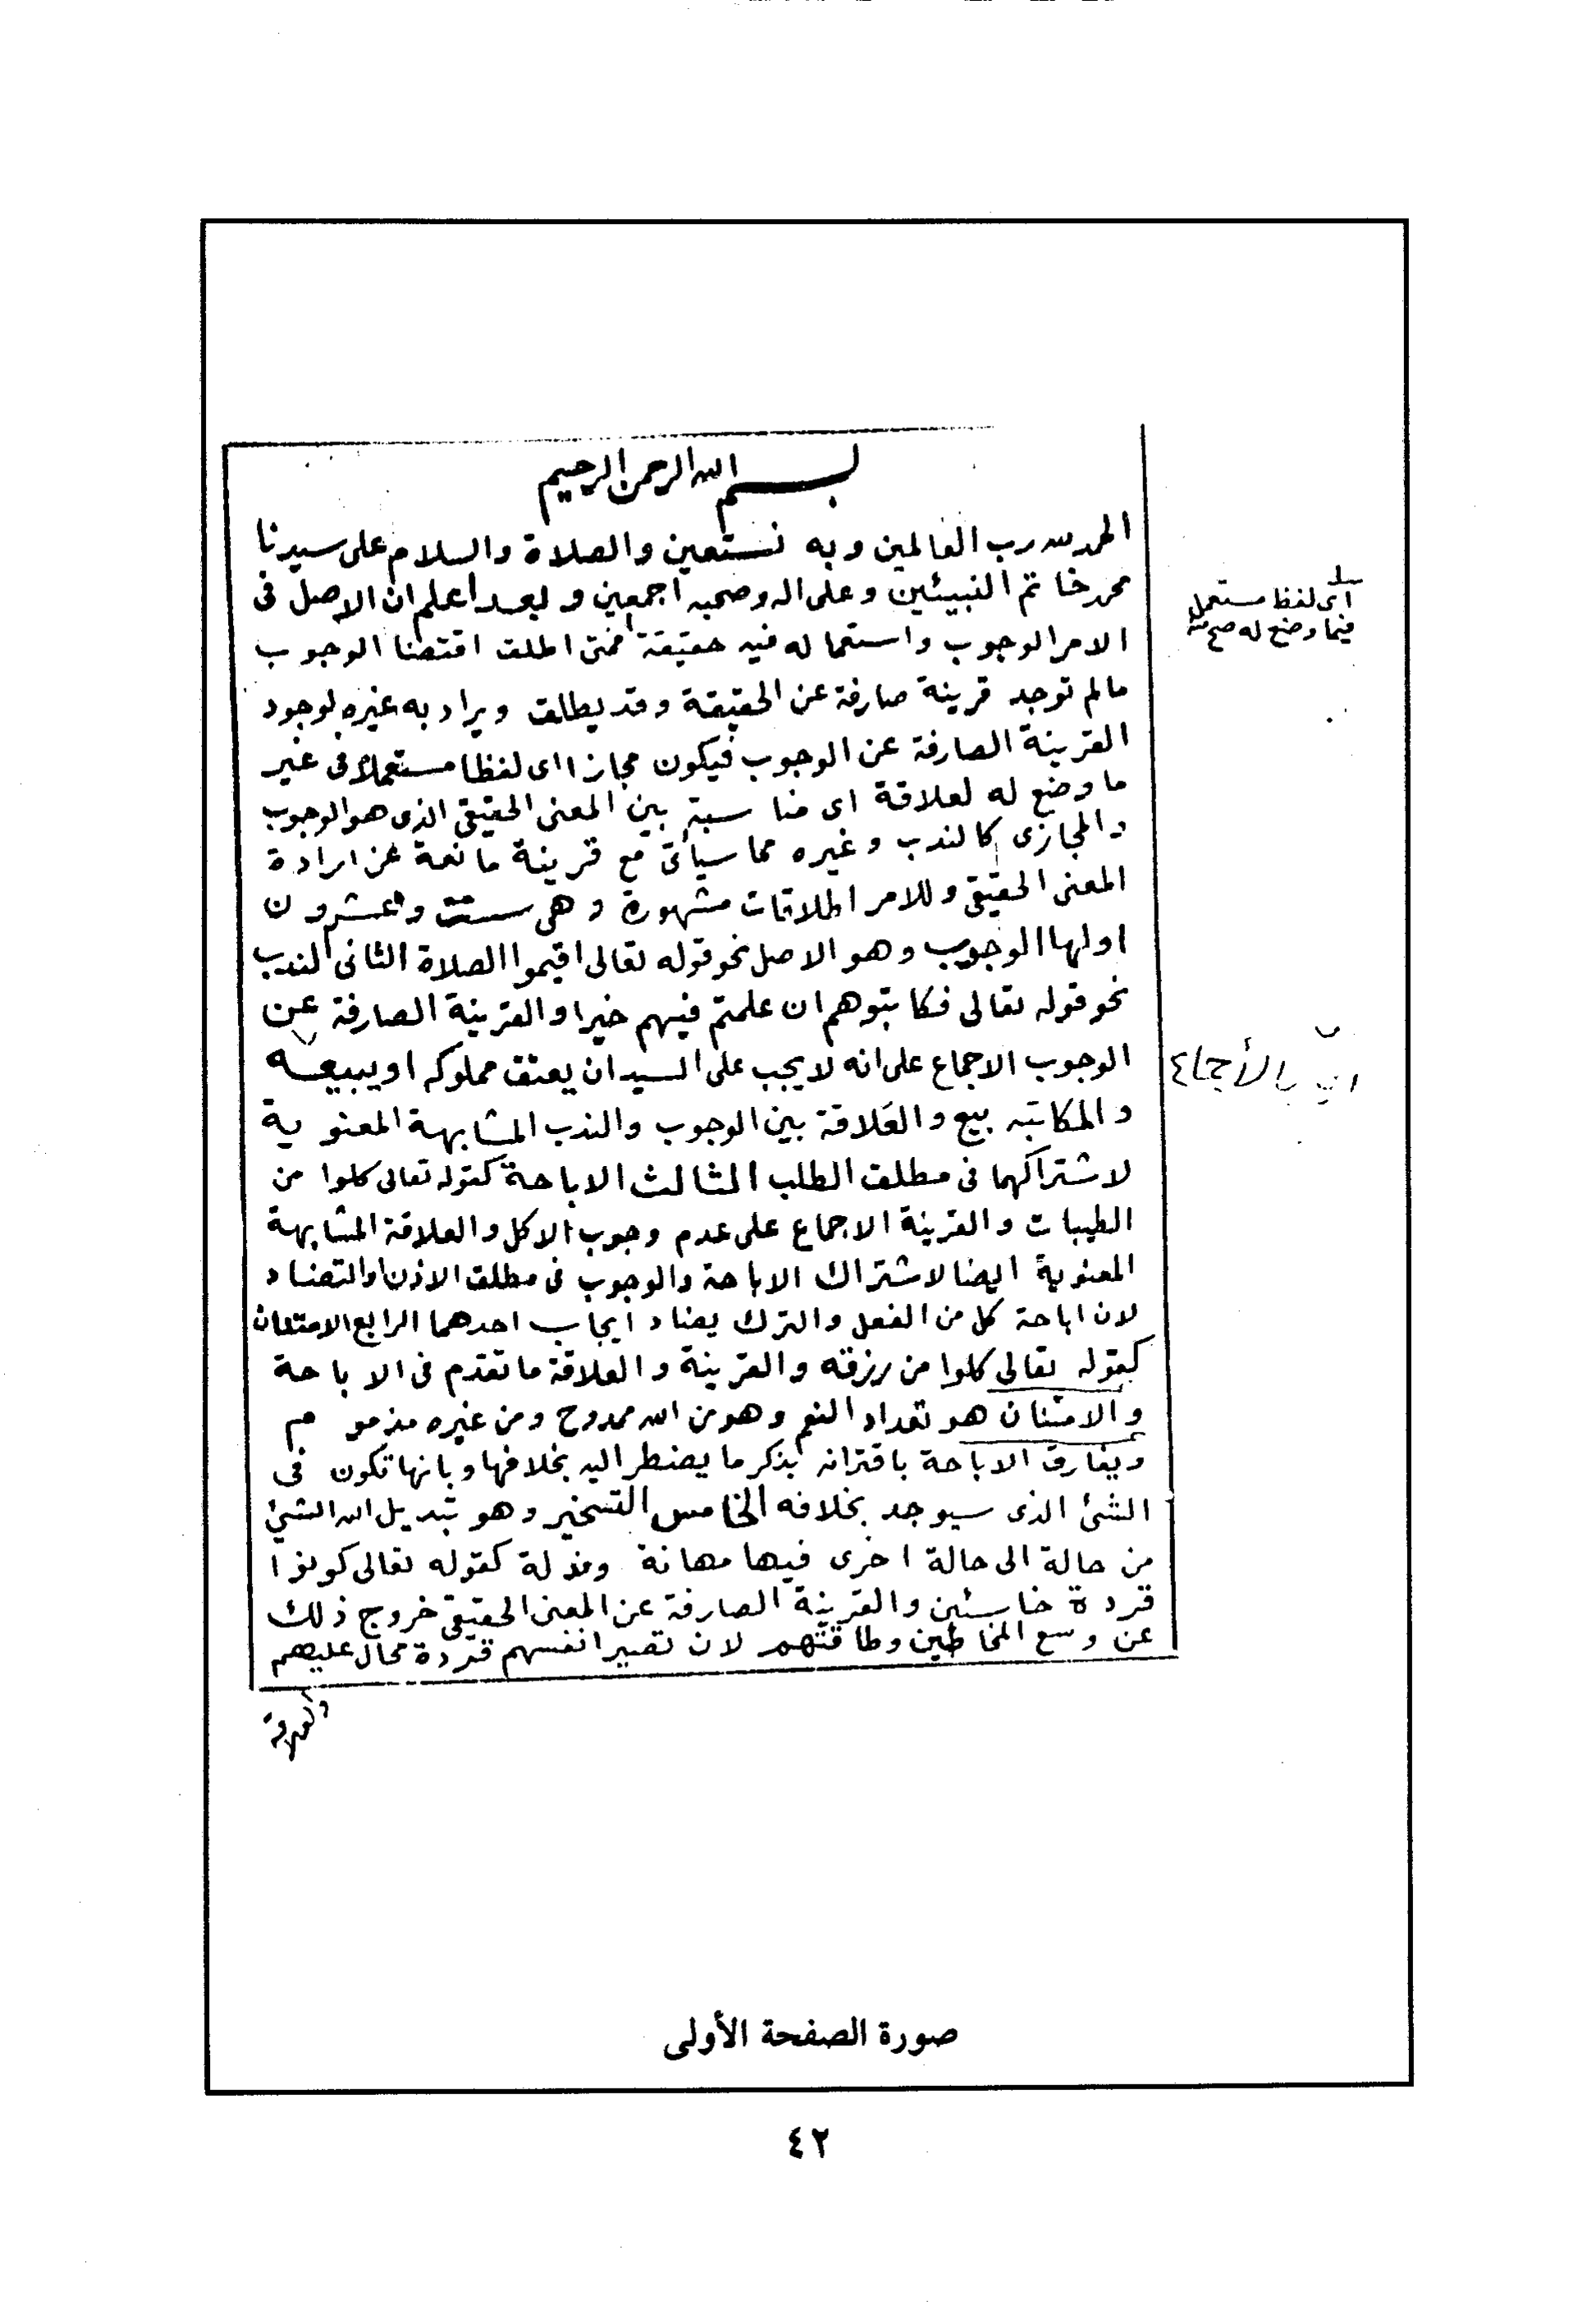 بسم الله الرحمن الرحيم
الحمد لله رب العالمين وبه نستعين والصلاة والسلام على سيدنا
محمد خاتم النبيئين وعلى اله وصحبه اجمعين وبعد اعلم ان الاصل فى
الامر الوجوب واستعماله فيه حقيقة فمتى اطلق اقتضا الوجوب
مالم توجد قرينة صارفة عن الحقيقة وقد يطلق ويراد به غيره لوجود
القرينة الصارفة عن الوجوب فيكون مجازا اى لفظا مستعملا فى غير
ما وضع له لعلاقة اى مناسبة بين المعنى الحقيقى الذى هو الوجوب
والمجازى كالندب وغيره مما سيأتى مع قرينة مانعة عن ارادة
المعنى الحقيقى وللامر اطلاقات مشهورة وهى ستت وعشرون
اولها الوجوب وهو الاصل نحو قوله تعالى اقيموا الصلاة الثانى الندب
نحو قوله تعالى فكاتبوهم ان علمتم فيهم خيرا والقرينة الصارفة عن
الوجوب الاجماع على انه لا يجب على السيد ان يعتق مملوكه او يبيعه
والمكاتبه بيع والعَلاقة بين الوجوب والندب المشابهة المعنوية
لاشتراكهما فى مطلق الطلب الثالث الاباحة كقوله تعالى كلوا من
الطيبات والقرينة الاجماع على عدم وجوب الاكل والعلاقة المشابهة
المعنوية ايضا لاشتراك الاباحة والوجوب فى مطلق الاذن او التضاد
لان اباحة كل من الفعل والترك يضاد ايجاب احدهما الرابع الامتنان
كقوله تعالى كلوا من رزقه والقرينة والعلاقة ما تقدم فى الاباحة
والامتنان هو تعداد النعم وهو من الله ممدوح ومن غيره مذموم
ويفارق الاباحة باقترانه بذكر ما يضطر اليه بخلافها وبانها تكون فى
الشئ الذى سيوجد بخلافه الخامس التسخير وهو تبديل الله الشئ
من حالة الى حالة اخرى فيها مهانة ومذلة كقوله تعالى كونوا
قردة خاسئين والقرينة الصارفة عن المعنى الحقيقى خروج ذلك
عن وسع المخاطبين وطاقتهم لان تصيير انفسهم قردة محال عليهم
والعلاقة
اى لفظ مستعمل
فيما وضع له صح منه
بالأجماع
صورة الصفحة الأولى
٤٢